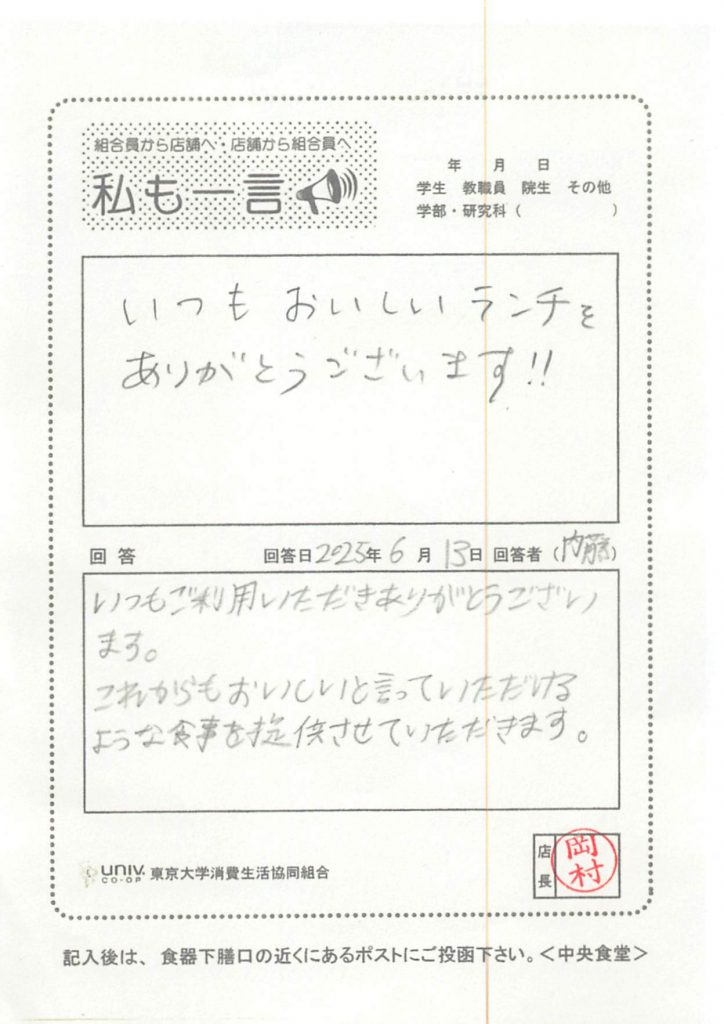 組合員から店舗へ・店舗から組合員へ
私も一言
年 月 日
学生 教職員 院生 その他
学部・研究科( )
いつもおいしいランチを
ありがとうございます!!
回答 回答日2025年6月13日 回答者(内藤)
いつもご利用いただきありがとうござい
ます。
これからもおいしいと言っていただける
ような食事を提供させていただきます。
UNIV. CO-OP 東京大学消費生活協同組合
店長 岡村
記入後は、食器下膳口の近くにあるポストにご投函下さい。<中央食堂>